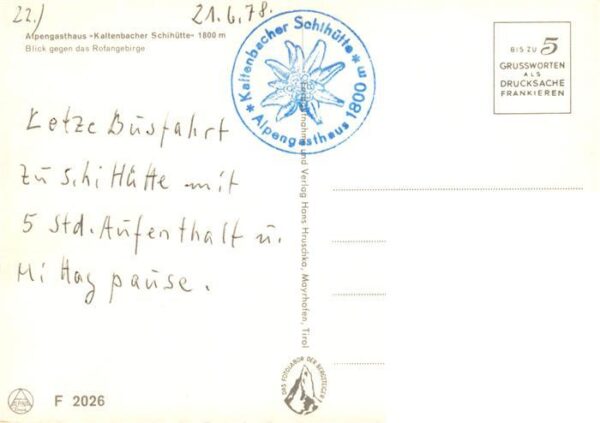 22.)
21.6.78.
Alpengasthaus «Kaltenbacher Schihütte» 1800 m
Blick gegen das Rofangebirge
* Kaltenbacher Schihütte *
Alpengasthaus 1800 m
BIS ZU 5
GRUSSWORTEN
ALS
DRUCKSACHE
FRANKIEREN
Letze Busfahrt
zu Schi Hütte mit
5 Std. Aufenthalt u.
Mittagpause.
und Verlag Hans Hruschka, Mayrhofen, Tirol
DAS FOTOLABOR DER BERGSTEIGER
F 2026